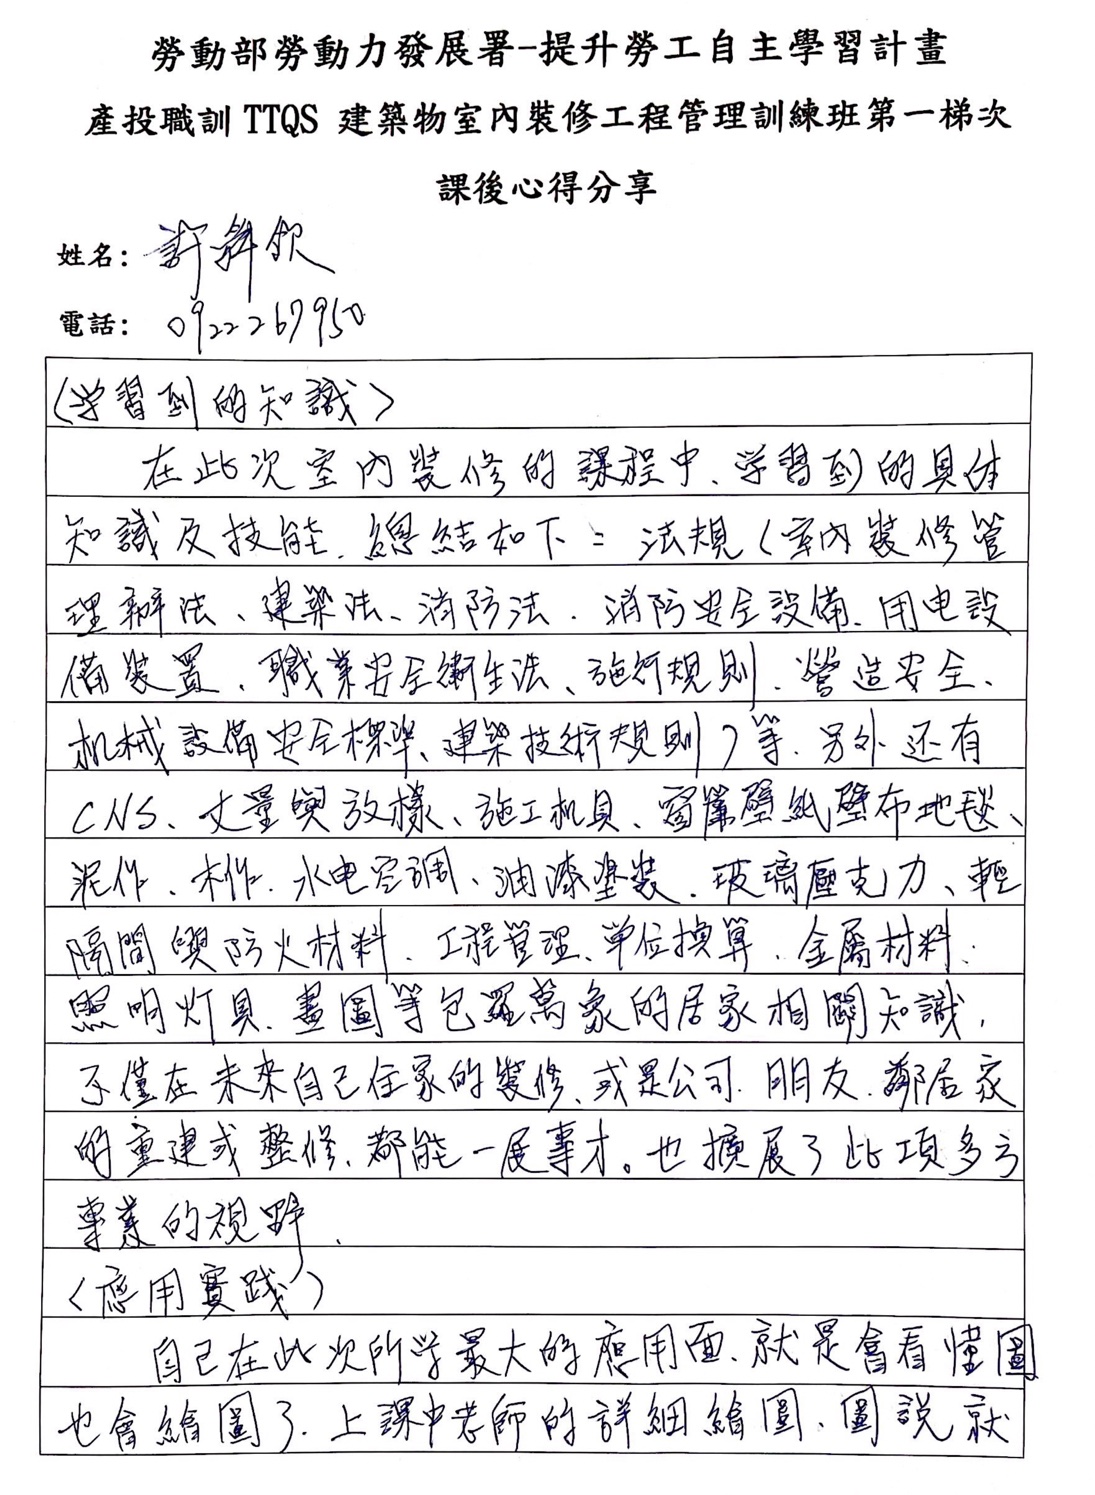 勞動部勞動力發展署-提升勞工自主學習計畫
產投職訓 TTQS 建築物室內裝修工程管理訓練班第一梯次
課後心得分享
姓名: 許欽
電話: 0922267950
(学習到的知識)
在此次室內裝修的課程中、学習到的具体
知識及技能、總結如下：法規（室內裝修管
理辦法、建築法、消防法、消防安全設備、用电設
備裝置、職業安全衛生法、施行規則、營造安全、
机械設備安全標準、建築技術規則）等、另外还有
CNS、丈量與放樣、施工机具、窗簾壁紙壁布地毯、
泥作、木作、水电空調、油漆塗裝、玻璃壓克力、輕
隔間與防火材料、工程管理、單位換算、金屬材料、
照明灯具、畫圖等包羅萬象的居家相關知識，
不僅在未來自己住家的裝修、或是公司、朋友、鄰居家
的重建或整修、都能一展專才。也擴展了此項多方
專業的視野、
〈應用實踐〉
自己在此次所学最大的應用面、就是會看懂圖
也會繪圖了、上課中老師的詳細繪圖、圖說就